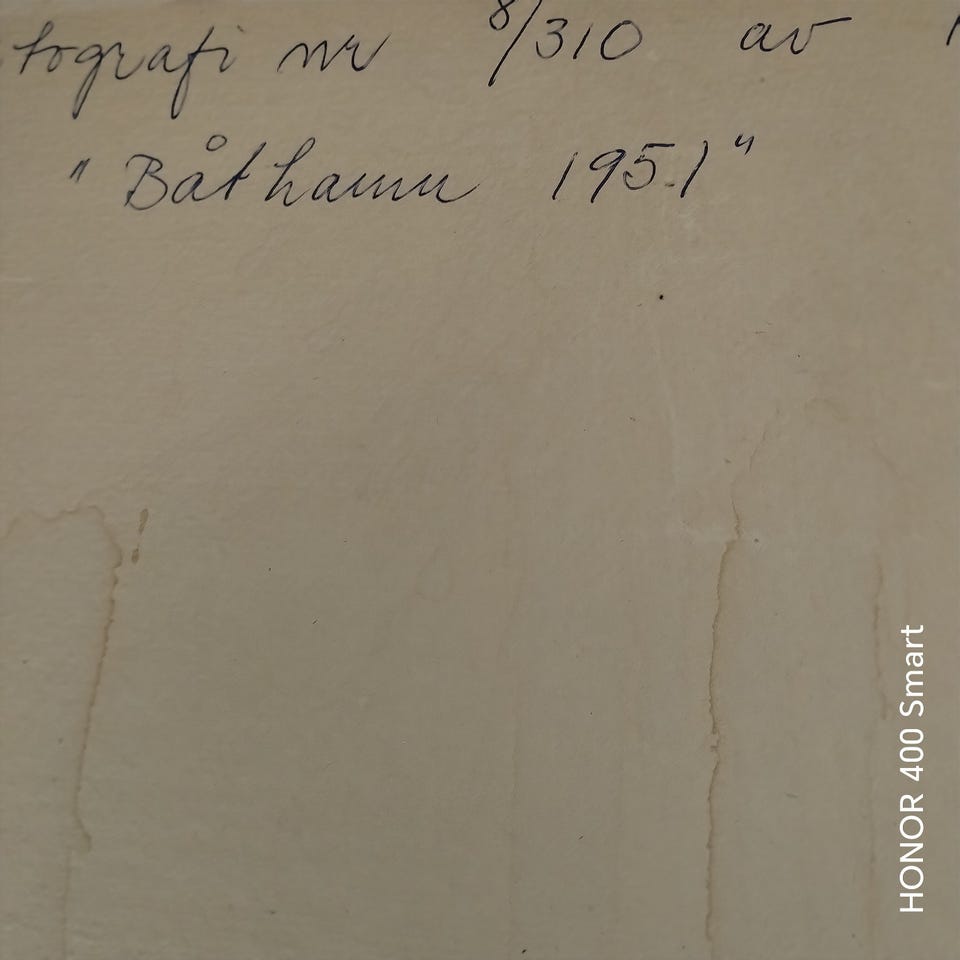 tografi nr 8/310 av
"Båthamn 1951"
HONOR 400 Smart